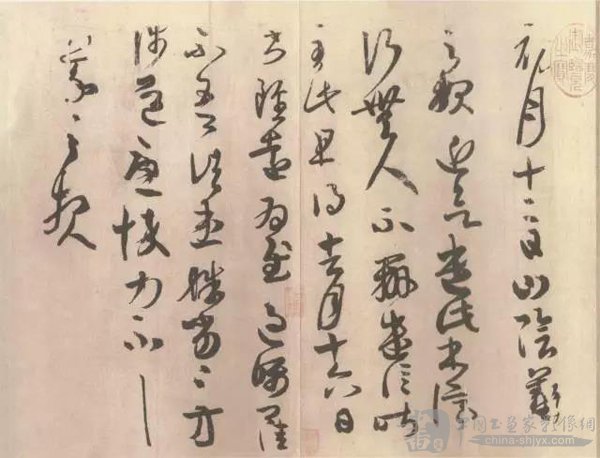 初月十二日山陰羲
之報近欲遣此書停
行無人不辦遣信昨
至此且得去月十六日
書雖遠為慰過囑卿佳
不吾諸患殊劣〻方
涉道憂悴力不具
羲之報
中国书画家影像網
china-shjyx.com